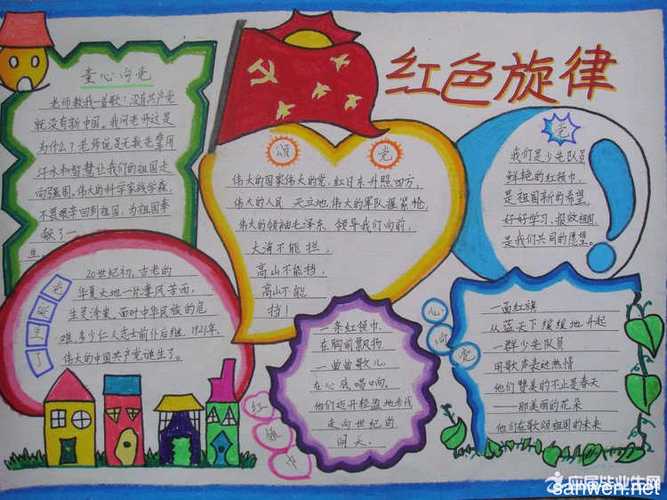 红色旋律
童心向党
老师教我一首歌:没有共产党
就没有新中国。我问老师这是
为什么?老师说是无数先辈用
汗水和智慧让我们的祖国走
向强国,伟大的科学家钱学森,
不畏艰辛回到祖国,为祖国奉
献了一
生
颂党
伟大的国家伟大的党,红日东升照四方,
伟大的人民天立地,伟大的军队握紧枪,
伟大的领袖毛泽东,领导我们向前,
大海不能拦,
高山不能挡,
高山不能
挡!
党
我们是少先队员
鲜艳的红领巾,
是祖国新的希望。
好好学习,报效祖国
是我们共同的愿望。
20世纪初,古老的
华夏大地一片凄风苦雨,
生灵涂炭,面对中华民族的危
难,多少仁人志士前仆后继,1921年,
伟大的中国共产党诞生了。
党诞生了
一条红领巾,
在胸前飘扬
一曲曲歌儿
在心底唱响
他们迈开轻盈地步伐
走向世纪的
明天。
红领巾
心向党
一面红旗
从蓝天下缓缓地升起
一群少先队员
用歌声表达热情
他们赞美的不止是春天
——那美丽的花朵
他们在歌颂祖国的未来
应届毕业生网
sanwen.net